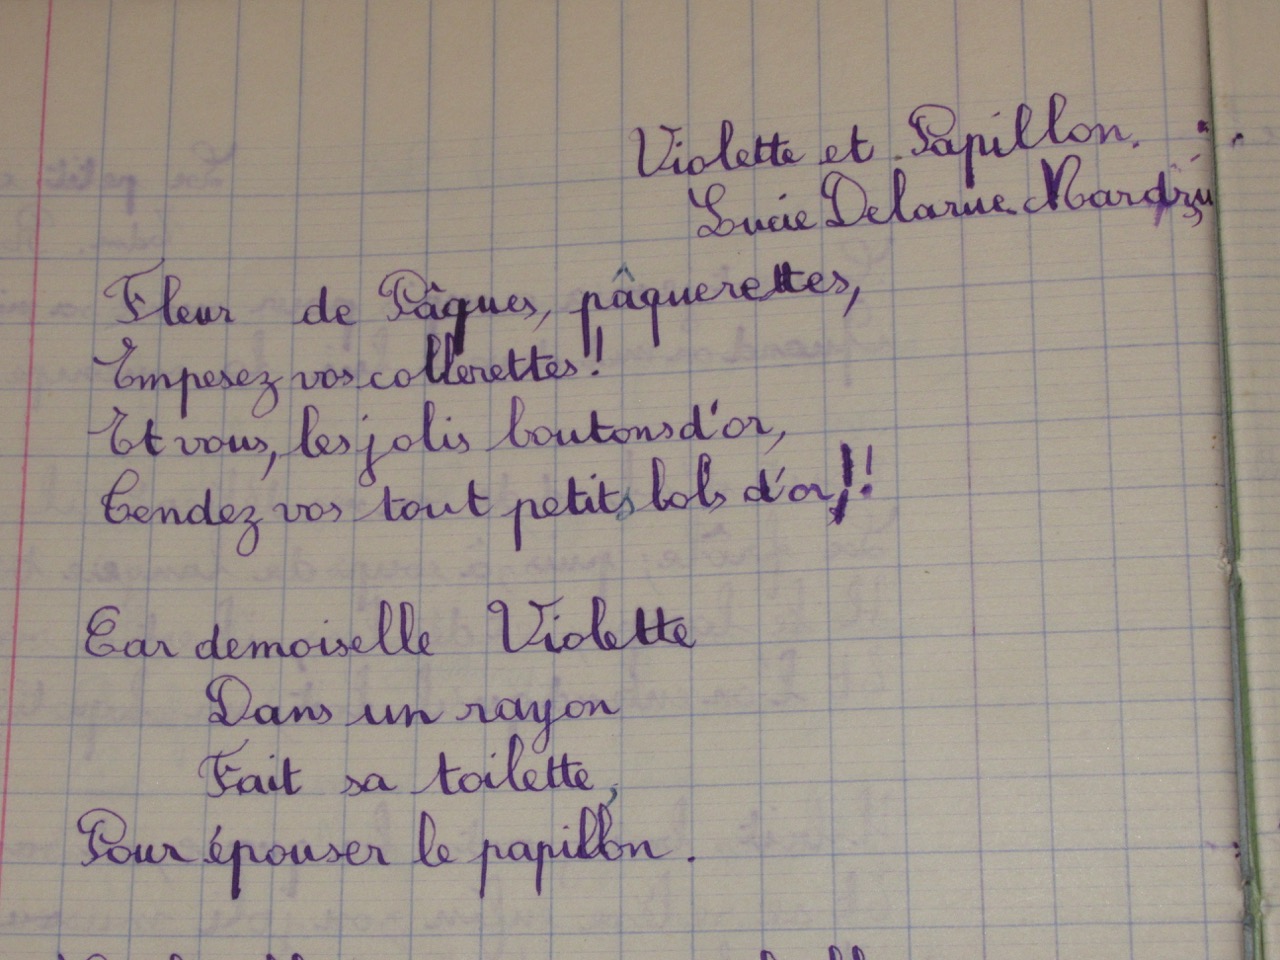 Violette et Papillon.
Lucie Delarue Mardru
Fleur de Pâques, pâquerettes,
Empesez vos collerettes!
Et vous, les jolis boutons d'or,
Tendez vos tout petits bols d'or!!
Car demoiselle Violette
Dans un rayon
Fait sa toilette,
Pour épouser le papillon.